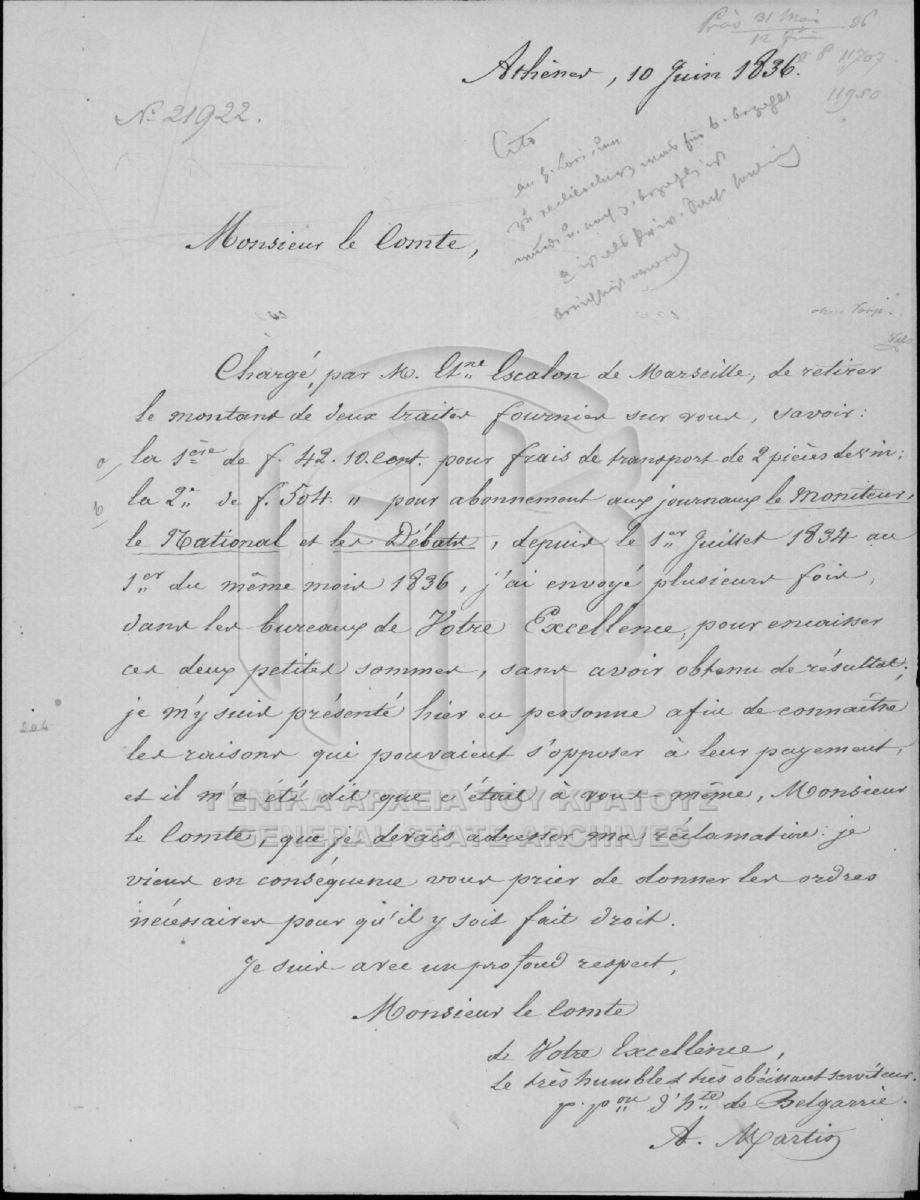 Präs 31 Mai 36
12 Juin
11707.
11950
Athènes, 10 Juin 1836.
No 21922.
Cito
Monsieur le Comte,
Chargé, par M. Etne Escalon de Marseille, de retirer
le montant de deux traites fournies sur vous, savoir:
a, la 1ère de f. 42.10.cent. pour frais de transport de 2 pièces de vin;
b, la 2e de f. 504 " pour abonnement aux journaux le Moniteur,
le National et les Débats, depuis le 1er Juillet 1834 au
1er du même mois 1836, j'ai envoyé plusieurs fois,
dans les bureaux de Votre Excellence, pour encaisser
ces deux petites sommes, sans avoir obtenu de résultat;
je m'y suis présenté hier en personne afin de connaître
les raisons qui pouvaient s'opposer à leur payement,
et il m'a été dit que c'était à vous même, Monsieur
le Comte, que je devais adresser ma réclamation: je
viens en conséquence vous prier de donner les ordres
nécessaires pour qu'il y soit fait droit.
Je suis avec un profond respect,
Monsieur le Comte
de Votre Excellence,
le très humble & très obéissant serviteur.
p. pon d'hte de Belgarric.
A. Martin
ΓΕΝΙΚΑ ΑΡΧΕΙΑ ΤΟΥ ΚΡΑΤΟΥΣ
GENERAL STATE ARCHIVES